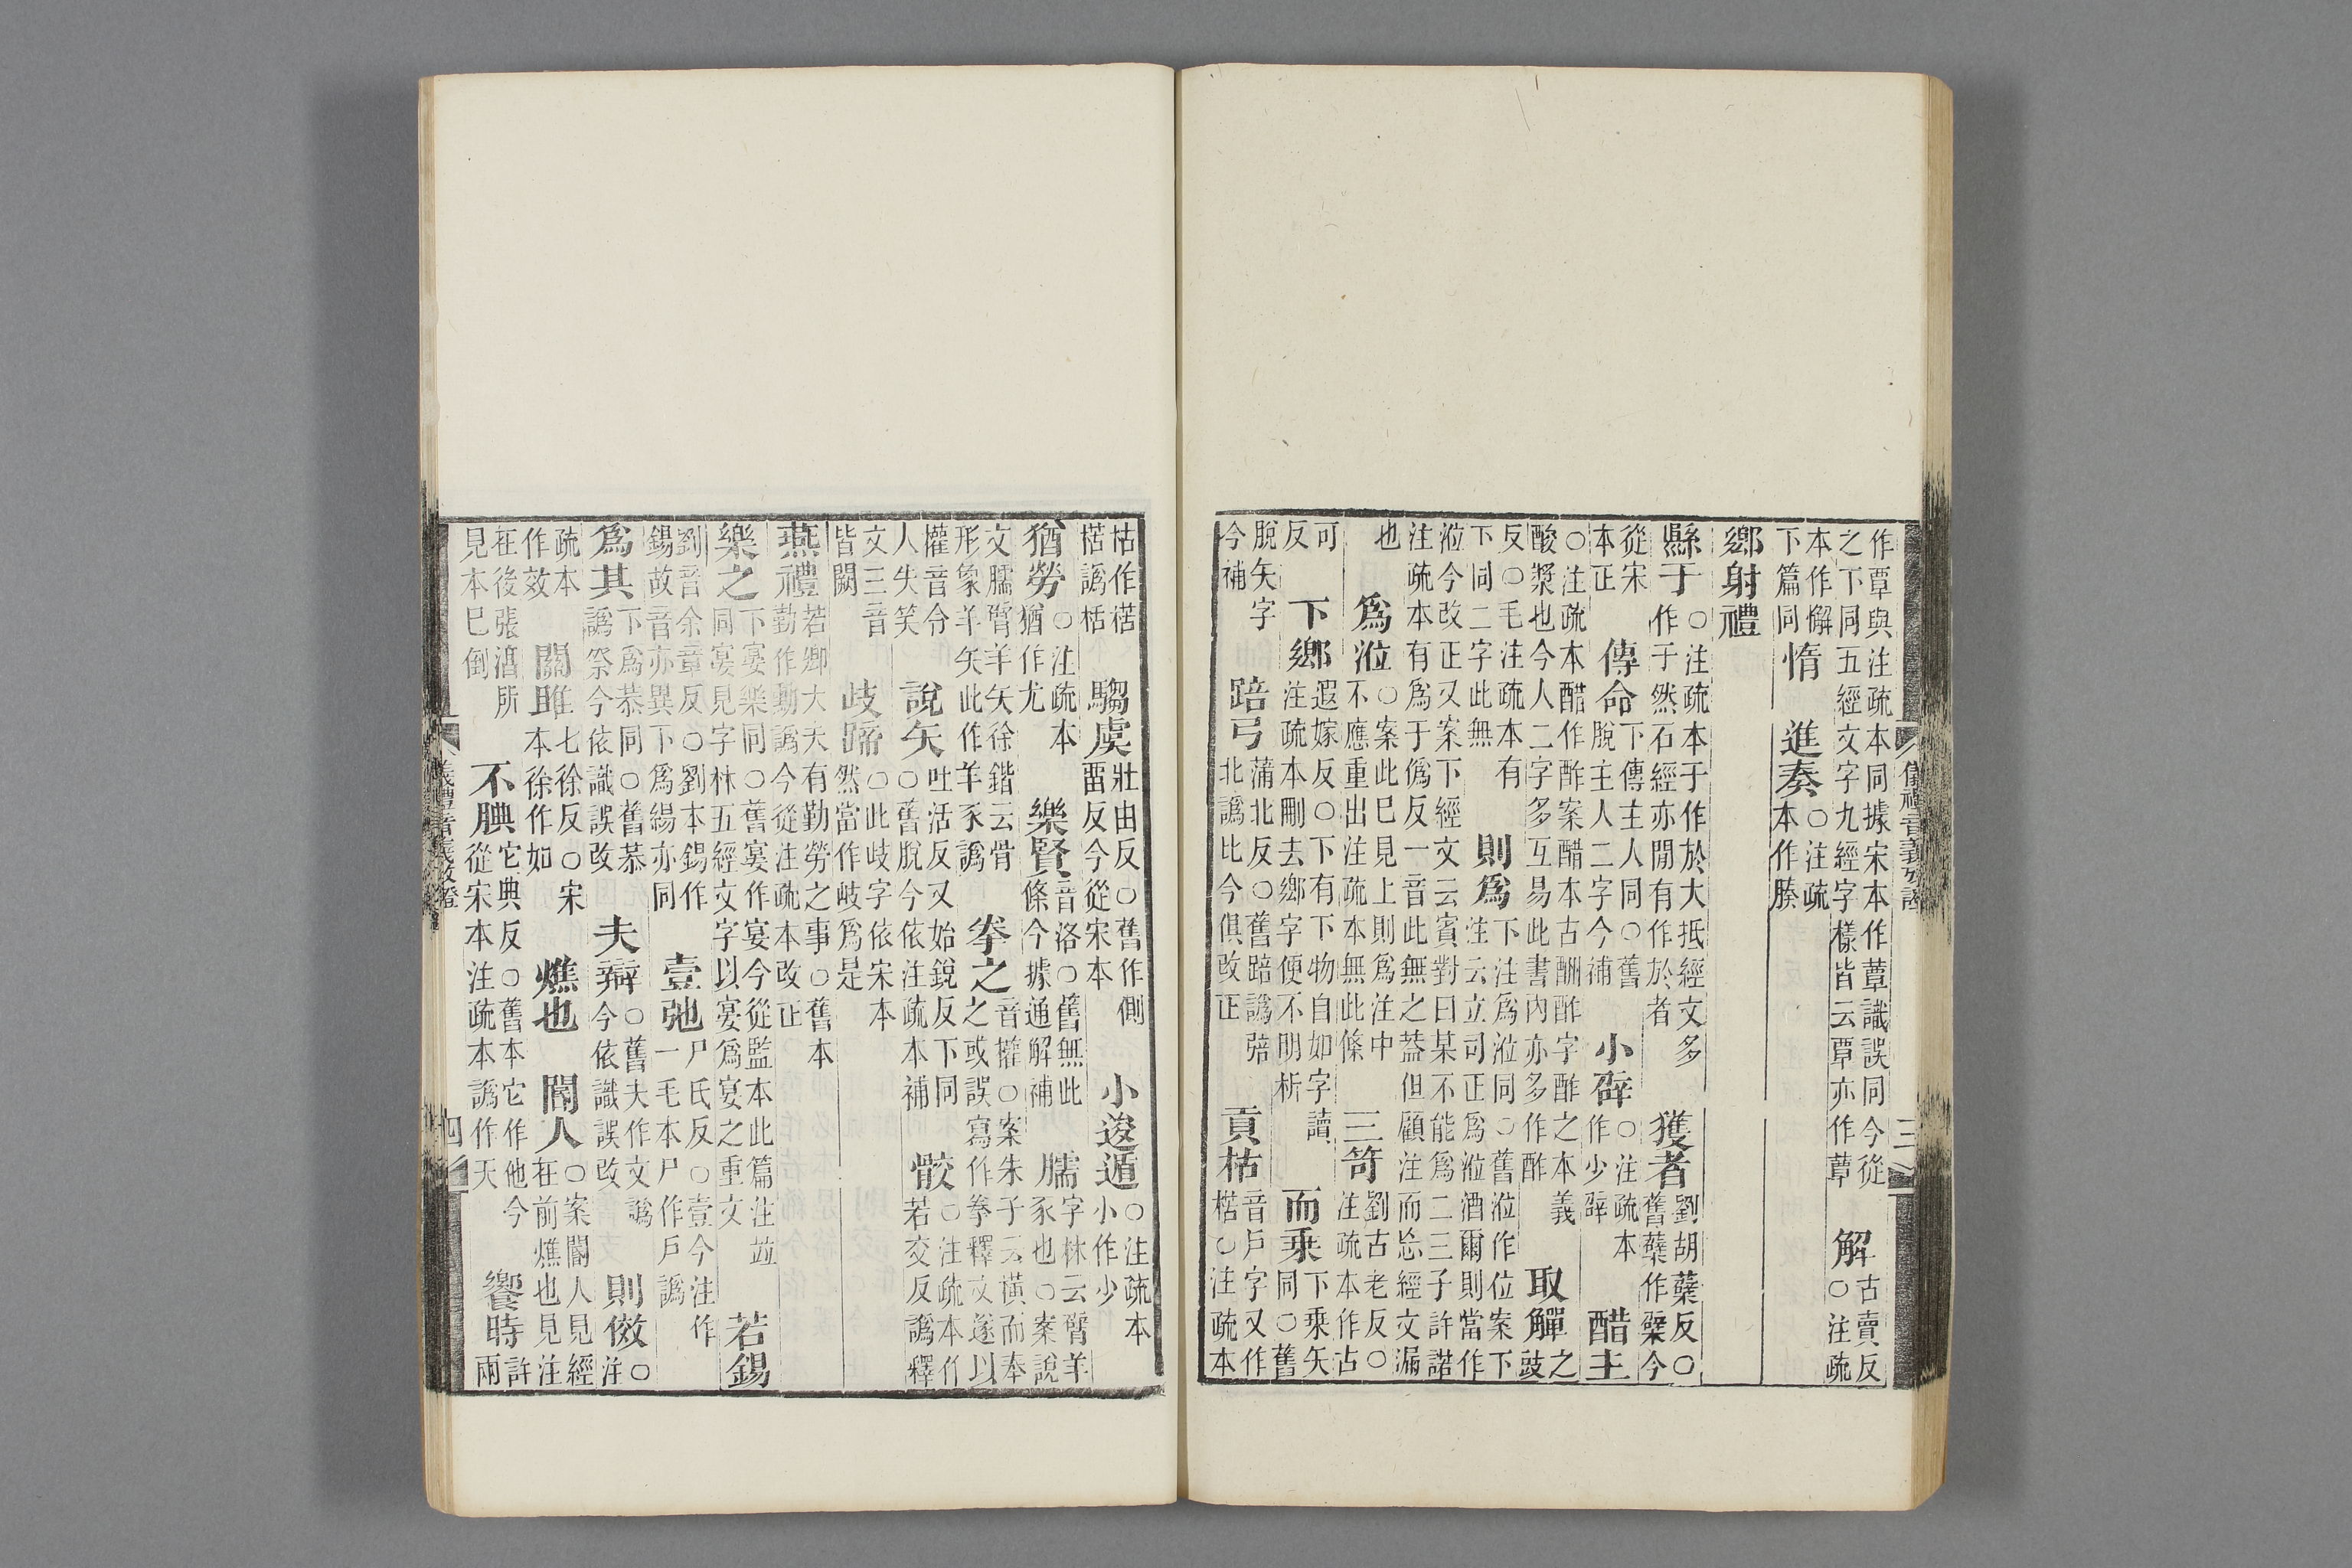 作覃與注疏本同據宋本作蕈識誤同今從
之下同五經文字九經字樣皆云覃亦作蕈
解古賣反○注疏
本作懈
下篇同
惰
進奏○注疏本作腠
鄉射禮
縣于○注疏本于作於大抵經文多作于然石經亦閒有作於者
獲者劉胡蘖反○舊蘖作檗今
從宋本正
傳命下傳主人同○舊脫主人二字今補
小辟○注疏本作少辟
醋主
○注疏本醋作酢案醋本古酬酢字酢之本義
酸漿也今人二字多互易此書內亦多作酢
取觶之豉
反○毛注疏本有
下同二字此無
則爲下注爲涖同○舊涖作位案下
注云立司正爲涖酒爾則當作
涖今改正又案下經文云賓對曰某不能爲二三子許諾
注疏本有爲于僞反一音此無之葢但顧注而忘經文漏
也
爲涖○案此已見上則爲注中不應重出注疏本無此條
三笴劉古老反○注疏本作古
可反
下鄉遐嫁反○下有下物自如字讀
注疏本刪去鄉字便不明析
而乘下乘矢同○舊
脫矢字今補
踣弓蒲北反○舊踣譌掊
北譌比今俱改正
貢楛音戶字又作楛○注疏本
枯作楛
楛譌栝
騶虞壯由反○舊作側
畱反今從宋本
小逡遁○注疏本小作少
猶勞○注疏本猶作尤
樂賢音洛○舊無此
條今據通解補
臑字林云臂羊豕也○案說
文臑臂羊矢徐鍇云骨
形象羊矢此作羊豕譌
拳之音權○案朱子云橫而奉之或誤寫作拳釋文遂以
權音令
人失笑
說矢吐活反又始銳反下同
○舊脫今依注疏本補
骹○注疏本作
若交反譌釋
文三音
皆闕
歧蹄○此歧字依宋本
然當作岐爲是
燕禮若卿大夫有勤勞之事○舊本
勤作勳譌今從注疏本改正
樂之下宴樂同○舊宴作宴今從監本此篇注竝
同宴見字林五經文字以宴爲宴之重文
若錫
劉音余章反○劉本錫作
錫故音亦異下爲緆亦同
壹弛尸氏反○壹今注作一毛本尸作戶譌
爲其下爲恭同○舊恭
譌祭今依識誤改
夫辯○舊夫作文譌
今依識誤改
則傚○注
疏本作效
關雎七徐反○宋
本徐作如
燋也
閽人○案閽人見經
在前燋也見注
在後張淳所
見本已倒
不腆它典反○舊本它作他今
從宋本注疏本譌作天
饗時許兩
儀禮音義攷證
三
儀禮音義攷證
四